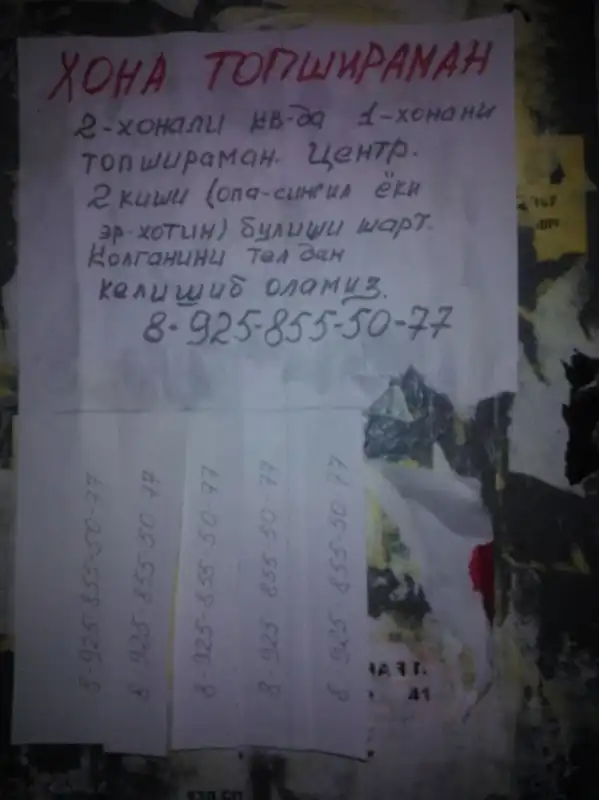 ХОНА ТОПШИРАМАН
2-хонали кв-да 1-хонани
топшираман. Центр.
2 киши (опа-сингил ёки
эр-хотин) булиши шарт.
Колганини тел дан
келишиб оламиз.
8-925-855-50-77
8-925-855-50-77
8-925-855-50-77
8-925-855-50-77
8-925-855-50-77
8-925-855-50-77
41